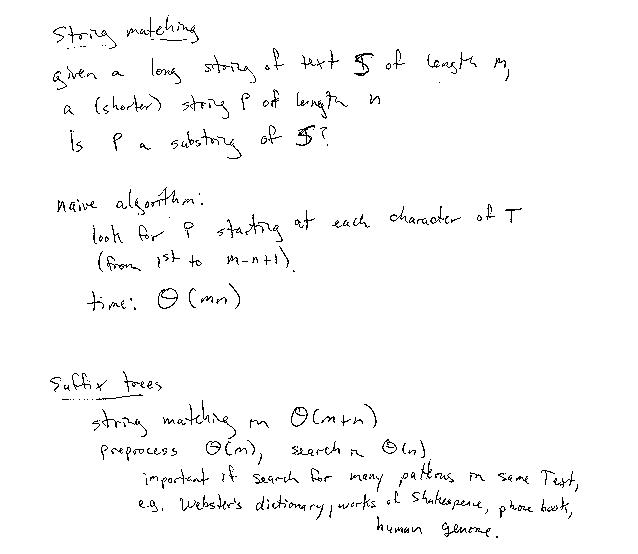 String matching
given a long string of text S of length m,
a (shorter) string P of length n
Is P a substring of S?
naive algorithm:
look for P starting at each character of T
(from 1st to m-n+1).
time: Θ(mn)
Suffix trees
string matching in Θ(m+n)
preprocess Θ(m), search in Θ(n)
important if search for many patterns in same Text,
e.g. Webster's dictionary, works of Shakespeare, phone book,
human genome.